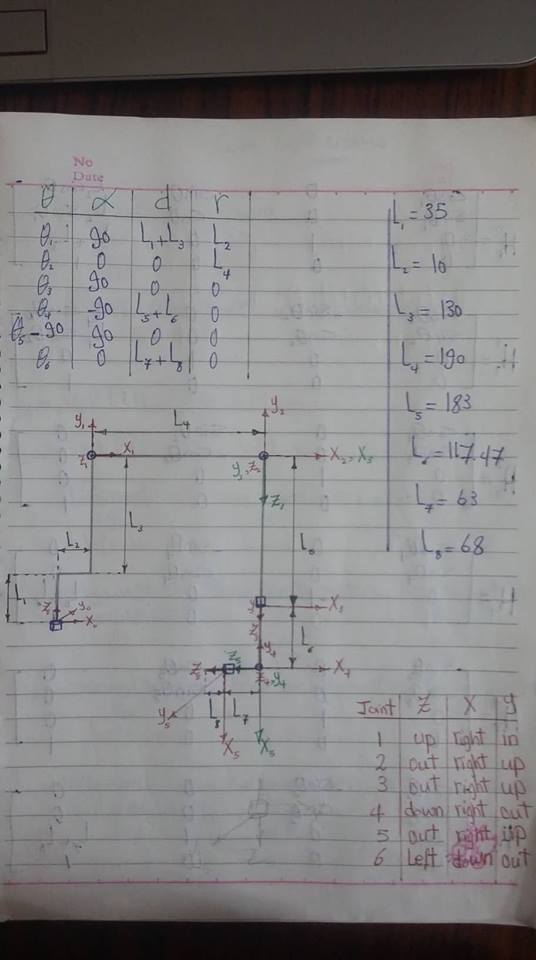 No
Date
θ α d r
θ₁ 90 L₁+L₃ L₂
θ₂ 0 0 L₄
θ₃ 90 0 0
θ₄ -90 L₅+L₆ 0
θ₅-90 90 0 0
θ₆ 0 L₇+L₈ 0
L₁ = 35
L₂ = 10
L₃ = 130
L₄ = 190
L₅ = 183
L₆ = 117.47
L₇ = 63
L₈ = 68
y₁
L₄
y₂
Z₁
X₁
y₃, Z₂
X₂, X₃
Z₃
L₃
L₂
L₁
y₀
X₀
X₃
L₆
y₄
X₄
Z₅
Z₄, y₄
y₅
L₈
L₇
X₅
X₅
Joint Z X y
1 up right in
2 out right up
3 out right up
4 down right out
5 out right up
6 Left down out